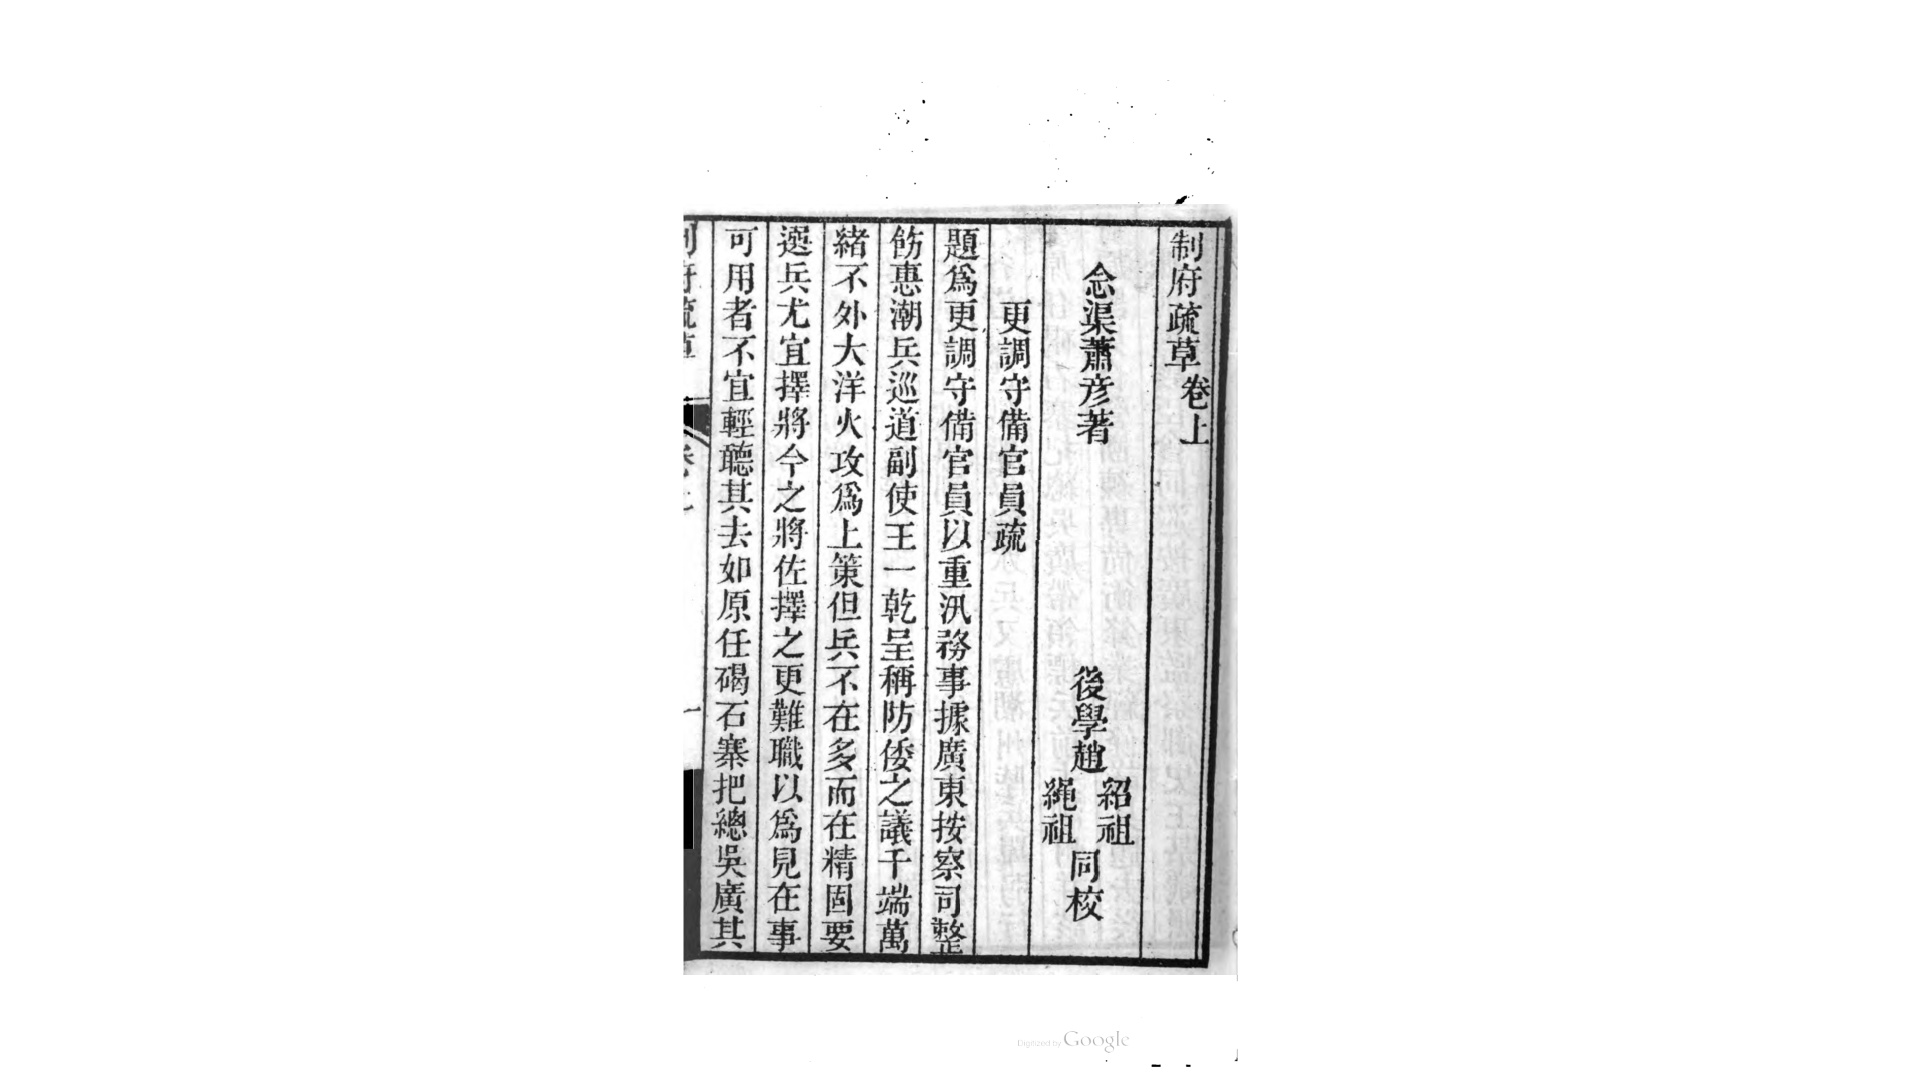 制府疏草卷上
念渠蕭彥著
後學趙紹祖繩祖同校
更調守備官員疏
題爲更調守備官員以重汛務事據廣東按察司整
飭惠潮兵巡道副使王一乾呈稱防倭之議千端萬
緒不外大洋火攻爲上策但兵不在多而在精固要
選兵尤宜擇將今之將佐擇之更難職以爲見在事
可用者不宜輕聽其去如原任碣石寨把總吳廣其
制府疏草
卷上
一
Digitized by Google